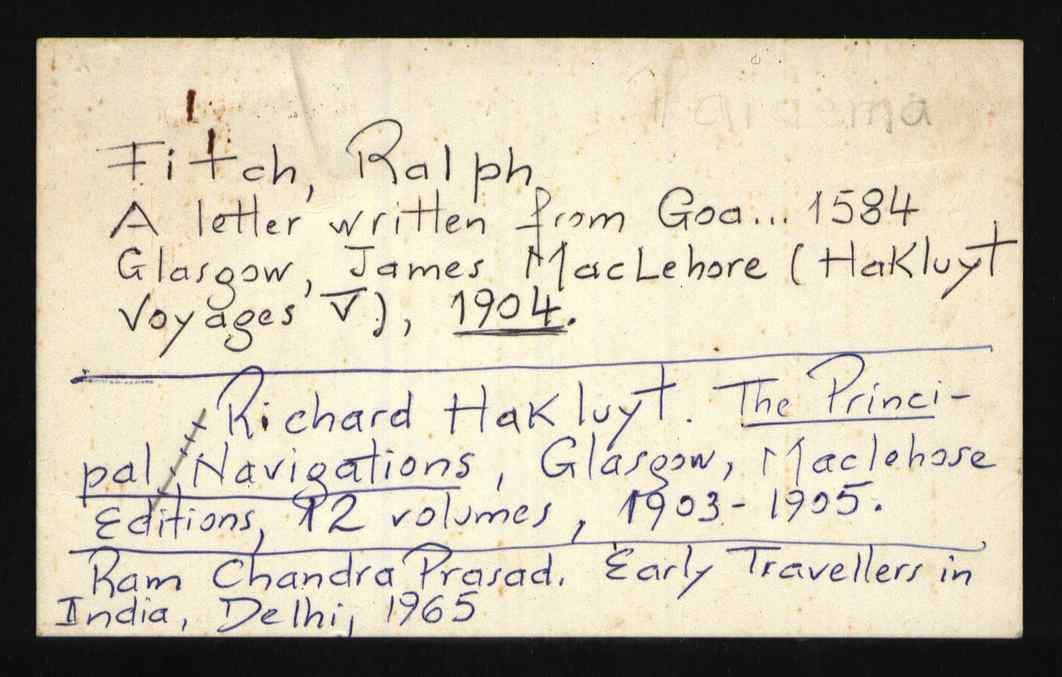 Fitch, Ralph
A letter written from Goa... 1584
Glasgow, James MacLehose (Hakluyt
Voyages V), 1904.
Richard Hakluyt. The Princi-
pal, Navigations, Glasgow, Maclehose
Editions, 12 volumes, 1903-1905.
Ram Chandra Prasad. Early Travellers in
India, Delhi, 1965